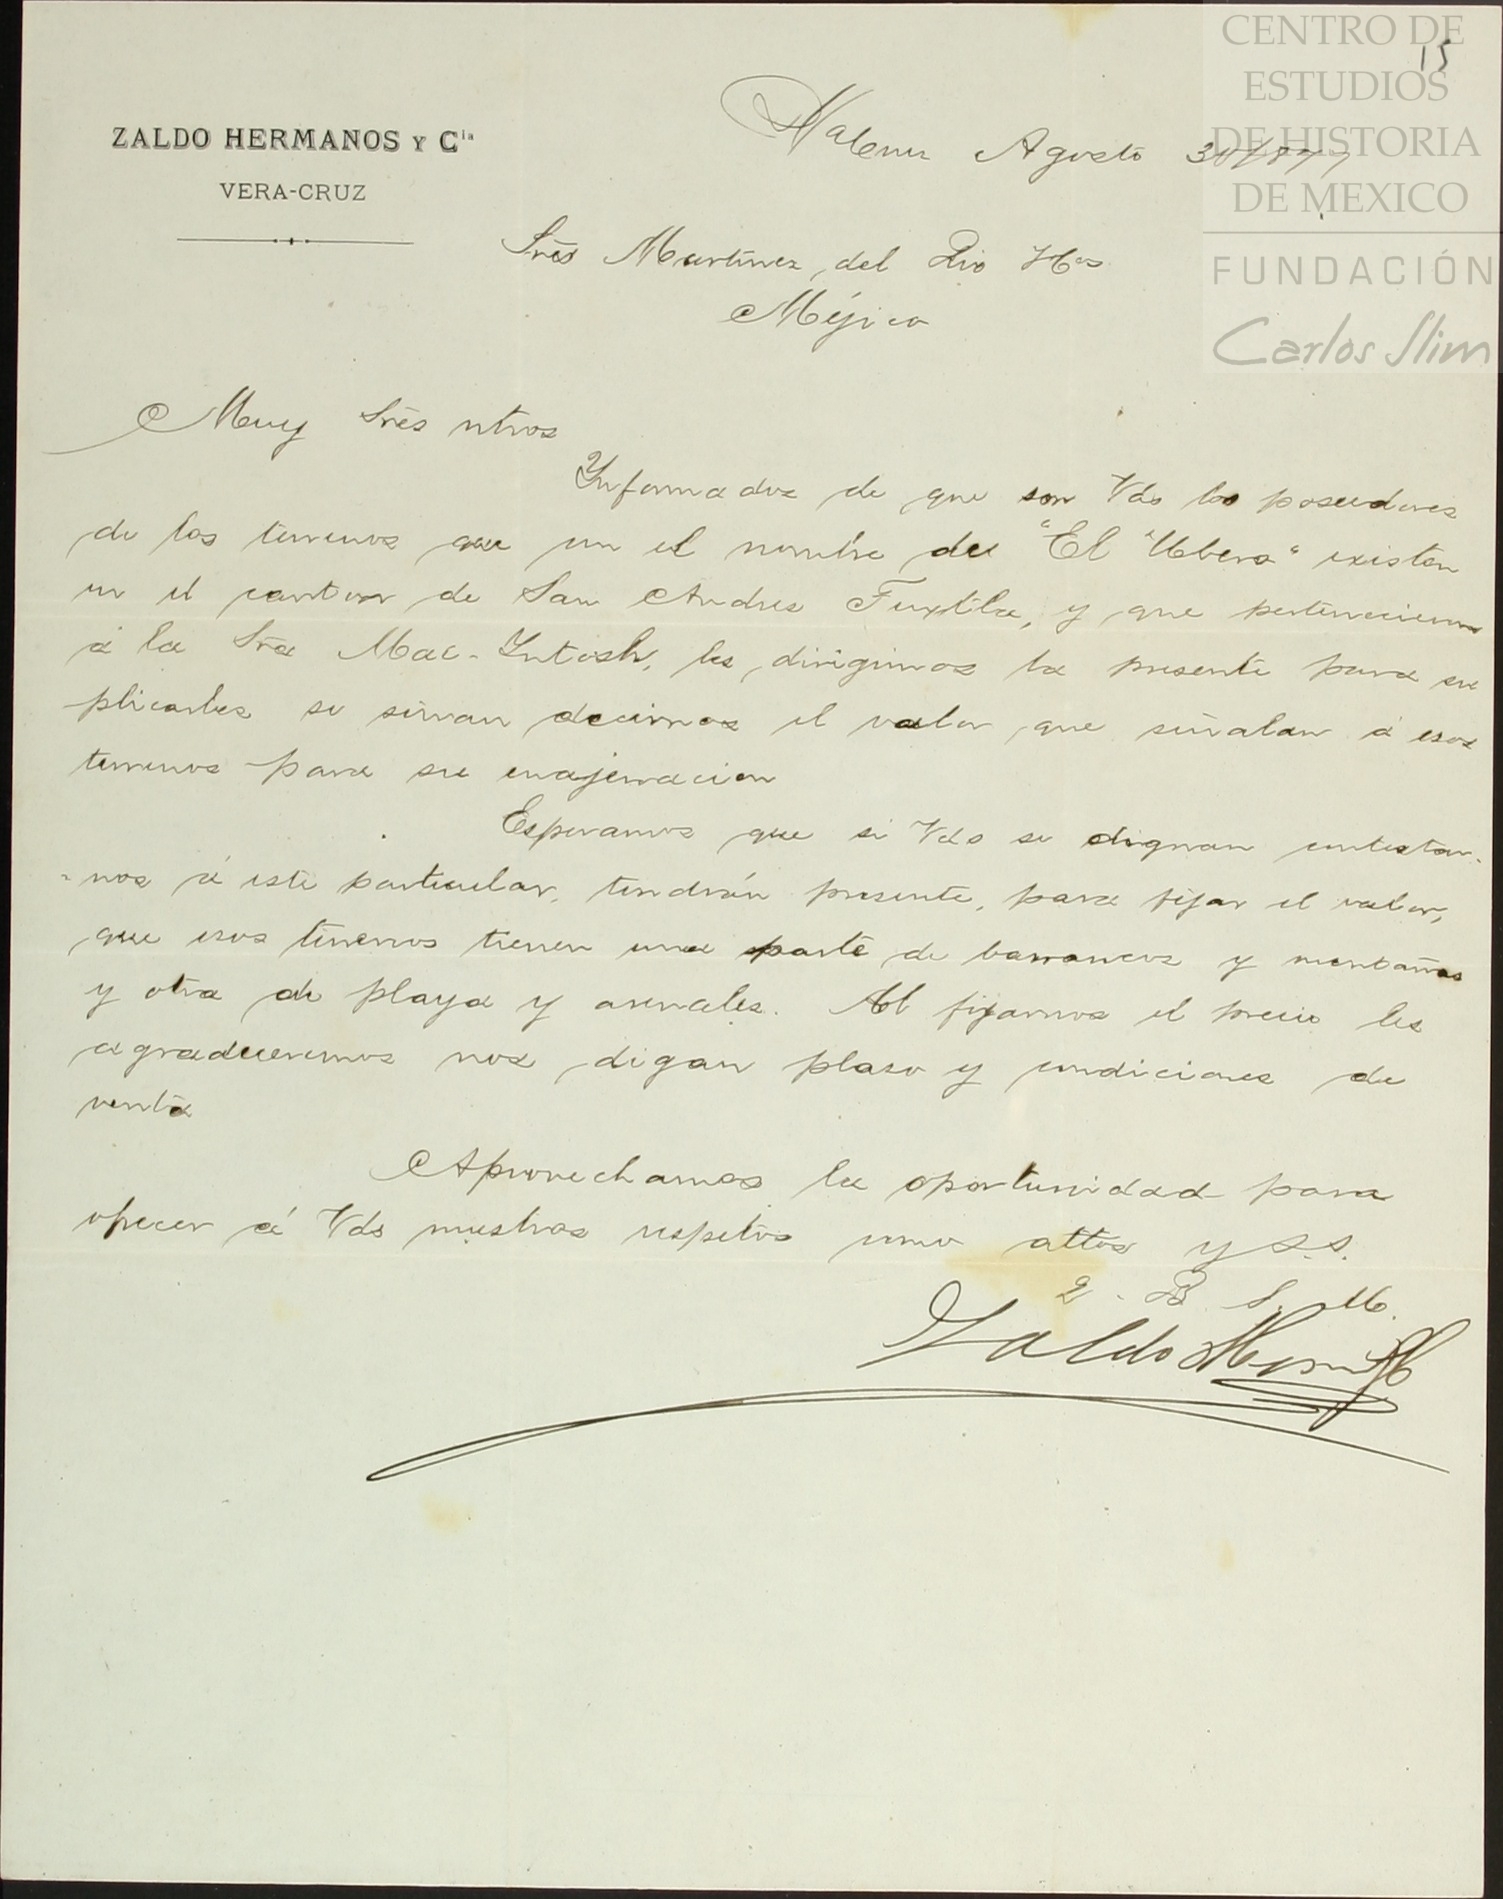 CENTRO DE
ESTUDIOS
DE HISTORIA
DE MEXICO
FUNDACIÓN
Carlos Slim
15
ZALDO HERMANOS Y Cia
VERA-CRUZ
Agosto 30/877
Srēs Martinez del Rio Hos
Méjico
Muy Srēs ntros
Informados de que son Vds los poseedores
de los terrenos que con el nombre de "El Ubero" existen
en el canton de San Andres Tuxtla, y que pertenecieron
á la Sra Mac-Intosh, les dirigimos la presente para su
plicarles se sirvan decirnos el valor que señalan á esos
terrenos para su enajenacion
Esperamos que si Vds se dignan contestar-
-nos á este particular, tendrán presente, para fijar el valor,
que esos terrenos tienen una parte de barrancos y montañas
y otra de playa y arenales. Al fijarnos el precio les
agradeceremos nos digan plaso y condiciones de
venta
Aprovechamos la oportunidad para
ofrecer á Vds nuestros respetos como attos y S.S.
Q. B. S. M.
Zaldo Herm y C